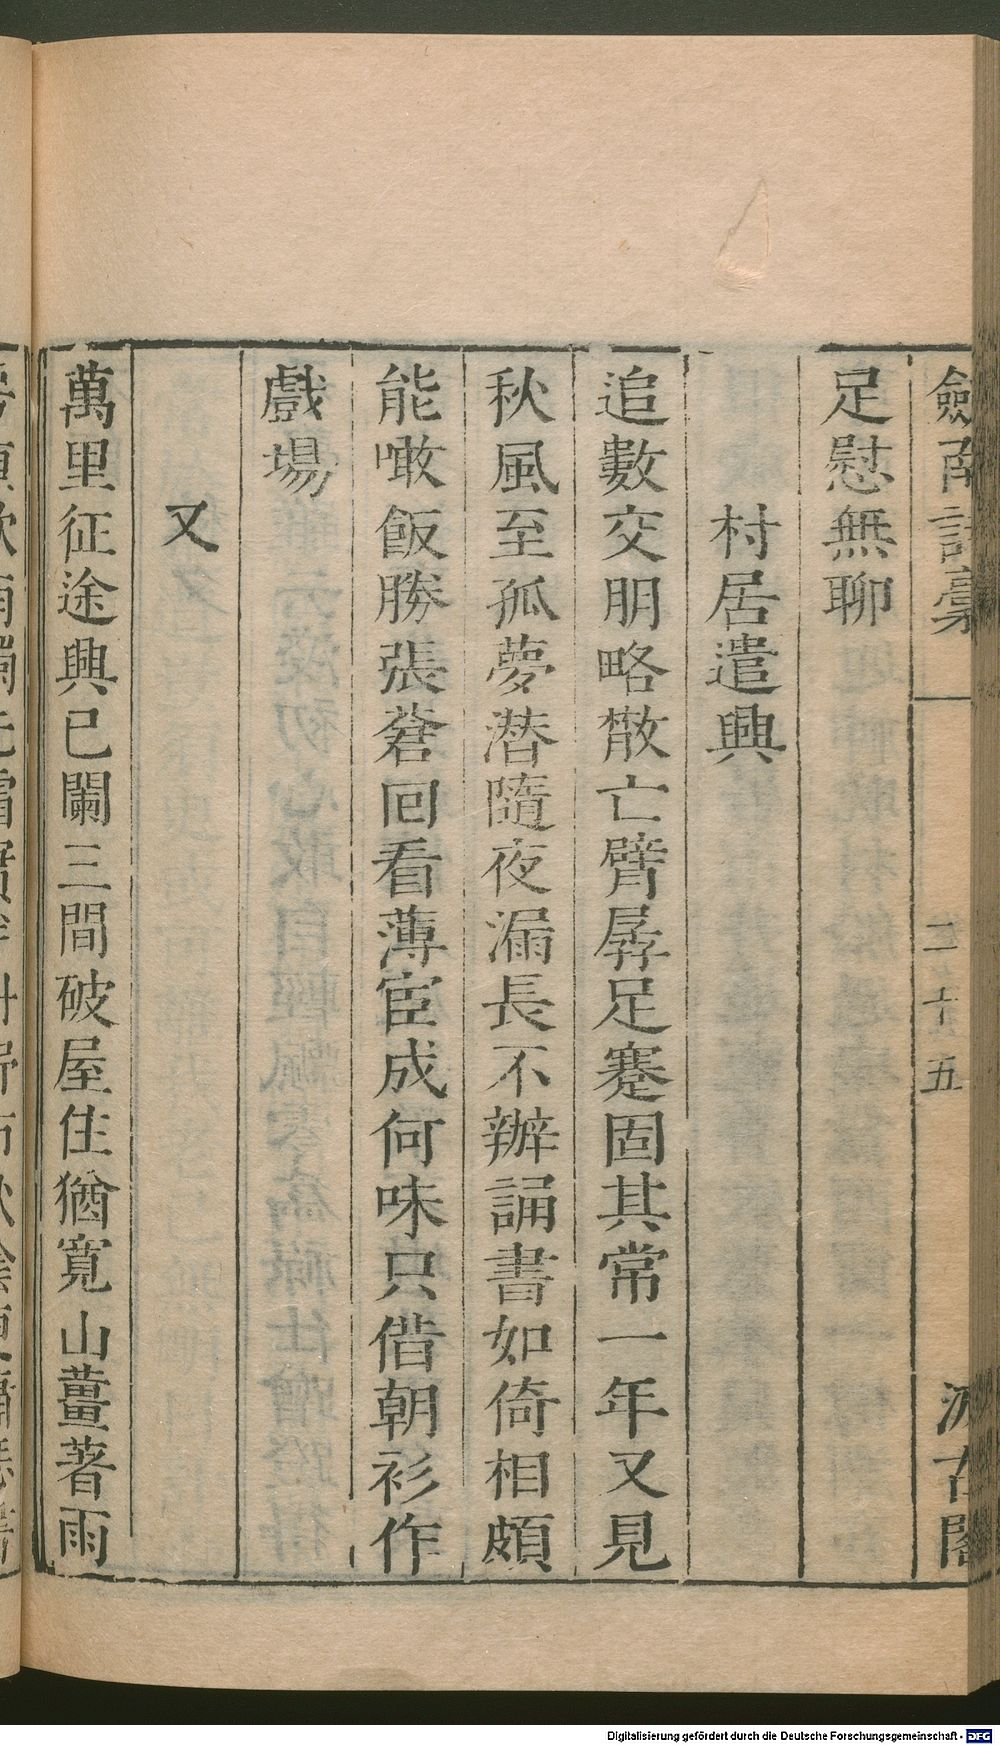 劒南詩稾
二十五
汲古閣
足慰無聊
村居遣興
追數交朋略散亡臂孱足蹇固其常一年又見
秋風至孤夢潛隨夜漏長不辦誦書如倚相頗
能噉飯勝張蒼回看薄宦成何味只借朝衫作
戲場
又
萬里征途興已闌三間破屋住猶寬山薑著雨
Digitalisierung gefördert durch die Deutsche Forschungsgemeinschaft - DFG